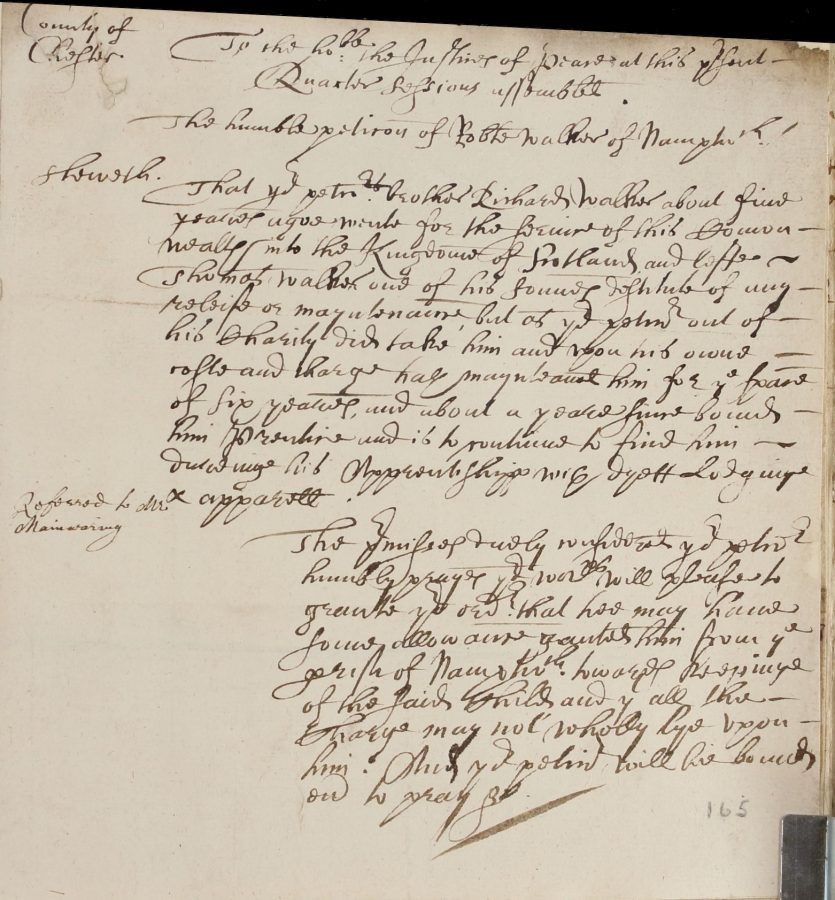 County of
Chester
To the hoble: the Justices of peace at this p'sent
Quarter Sessions assembled.
The humble peticon of Robte Walker of Namptwch.
Sheweth.
That yor petrs. brother Richard Walker about five
yeares agoe wente for the service of this Comon
wealth into the Kingdome of Scotland, and lefte
Thomas Walker one of his sonnes destitute of any
releife or mayntenance, but as yor petr out of
his Charity did take him and upon his owne
coste and charge hath mayntained him for ye space
of six yeares, and about a yeare since bound
him Prentice and is to continue to find him
dureinge his Apprentishipp with dyett Lodginge
& apparell.
Referred to Mr
Mainwaring
The p'misses duely considered yor petr
humbly prayes yor worpps will please to
grante yor order that hee may have
some allowance granted him from ye
perish of Namptwch. towards Keepinge
of the said Child and yt all the
Charge may not wholly lye upon
him. And yor petr will be bound
en to pray &c.
165